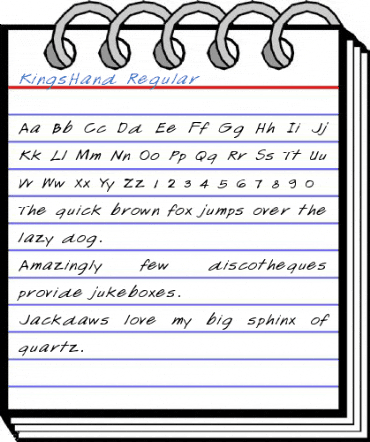 KingsHand Regular
Aa Bb Cc Dd Ee Ff Gg Hh Ii Jj
Kk Ll Mm Nn Oo Pp Qq Rr Ss Tt Uu
Vv Ww Xx Yy Zz 1 2 3 4 5 6 7 8 9 0
The quick brown fox jumps over the
lazy dog.
Amazingly few discotheques
provide jukeboxes.
Jackdaws love my big sphinx of
quartz.